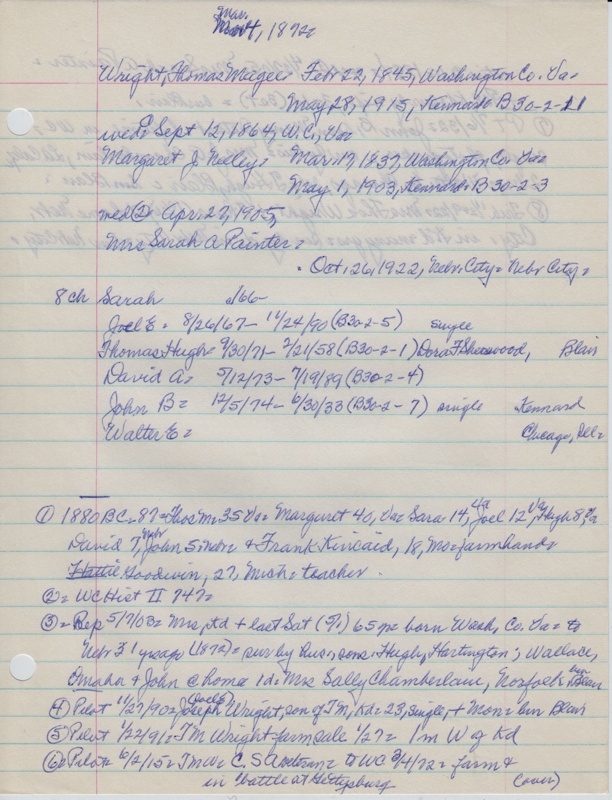 Mar.
Mar 4, 1872
Wright, Thomas Magee = Feb 22, 1845, Washington Co. Va =
May 28, 1915, Kennard = B30-2-11
wed. Sept 12, 1864, W.C., Va
Margaret J. = Mar. 17, 1837, Washington Co. Va =
May 1, 1903, Kennard = B30-2-3
wed (2) Apr. 27, 1905,
Mrs Sarah A Painter =
- Oct. 26, 1922, Nebr City = Nebr City =
8 ch Sarah d/66 -
Joel E = 8/26/67 - 11/24/90 (B30-2-5) single
Thomas Hugh = 9/30/71 - 2/21/58 (B30-2-1) Dora F Sherwood, Blair
David A = 5/12/73 - 7/19/89 (B30-2-4)
John B = 12/5/74 - 6/30/33 (B30-2-7) single Kennard
Walter E = Chicago, Ill =
① 1880 BC = 87 = Thos M = 35 Va = Margaret 40, Va = Sara 14, Va Joel 12 Va, Hugh 8, Va
David 7, Nebr John 5 Nebr = & Frank Kincaid, 18, Mo = farmhand =
Hattie Goodwin, 27, Mich = teacher.
② = WC Hist II 747 =
③ = Rep 5/7/03 = Mrs, Kd + last Sat (5/1) 65 yr = born Wash, Co. Va = to
Nebr 31 yrs ago (1872) = sur by hus, sons: Hugh, Hartington; Wallace,
Omaha & John @ home 1 d: Mrs Sally Chamberlain, Norfolk = bur Blair
④ Pilot 11/27/90 = Joseph (Joel E) Wright, son of TM, Kd = 23, single, + Mon = bur Blair
⑤ Pilot 1/22/91 = TM Wright farm sale 1/27 = 1 m W of Kd
⑥ Pilot = 6/2/15 = TMW = C.S.A veteran = to WC 3/4/72 = farm &
in battle at Gettysburg (over)